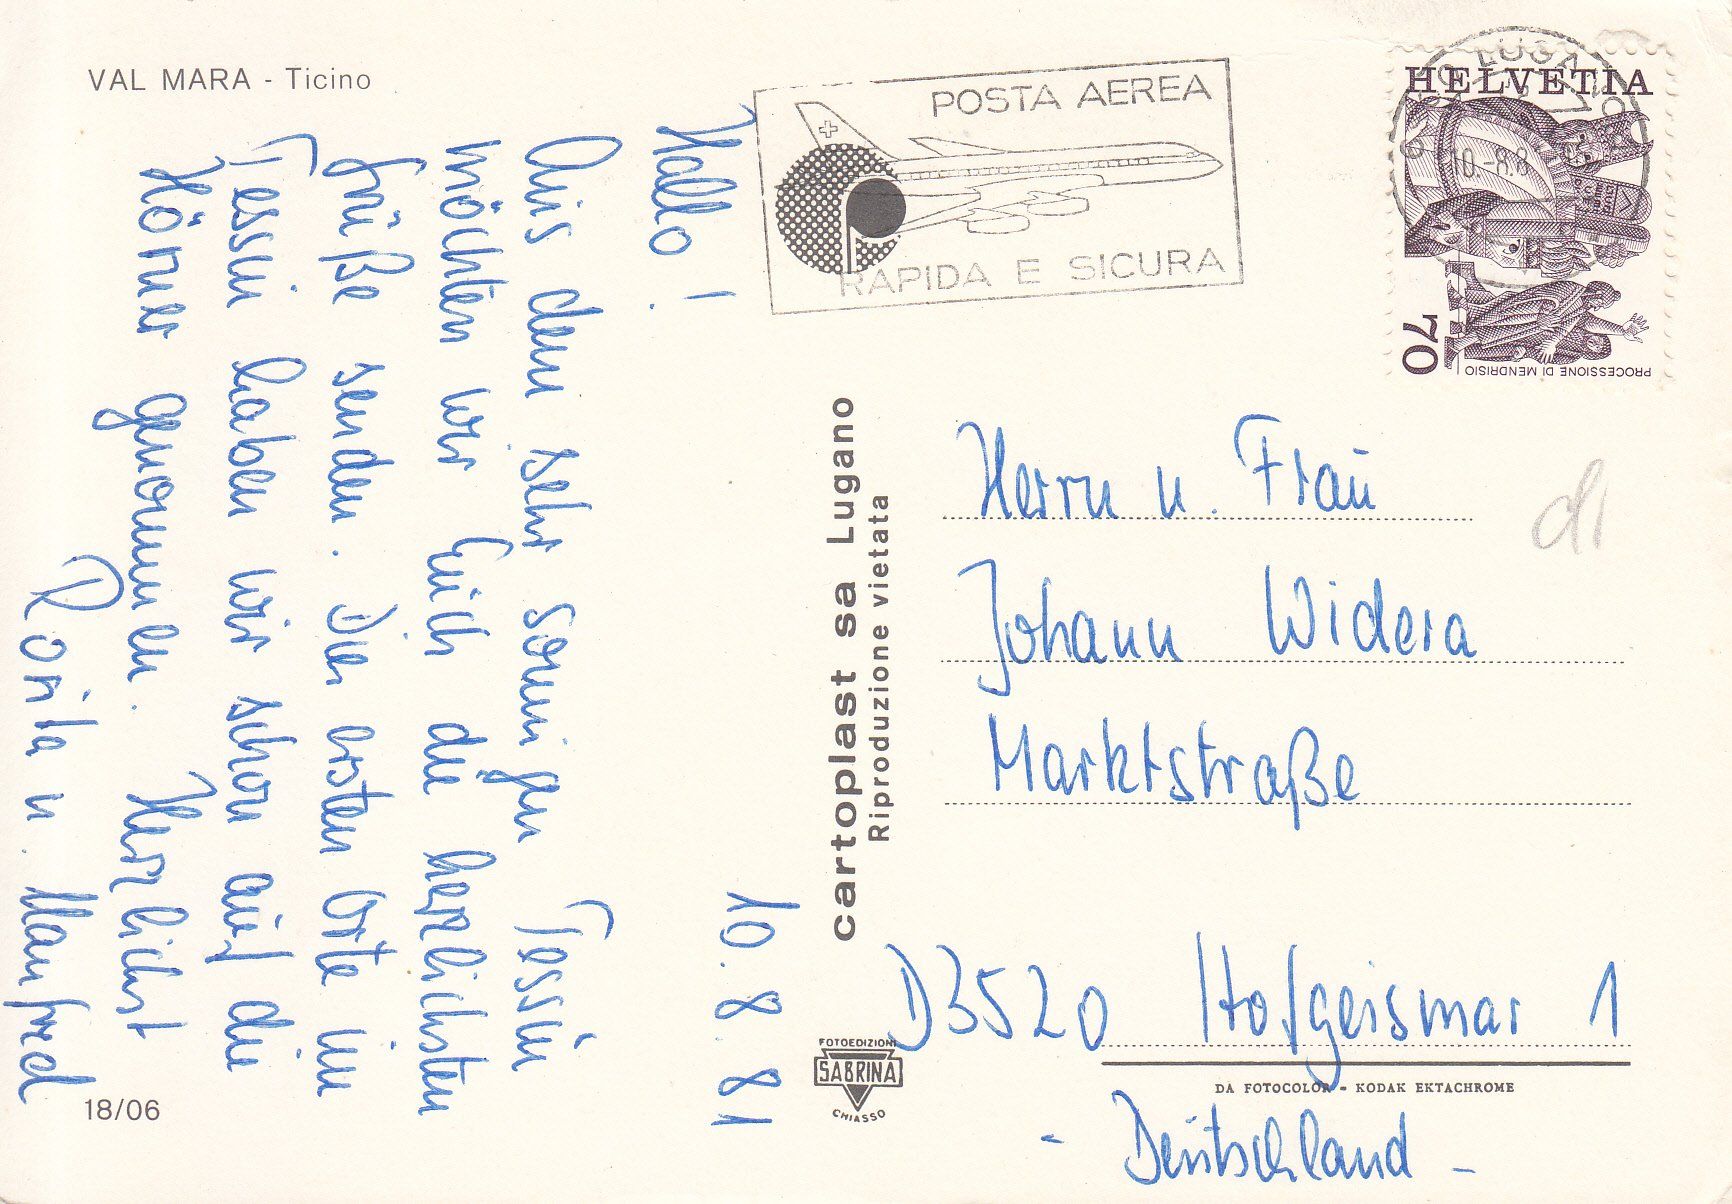 VAL MARA - Ticino
10.8.81
Hallo!
Aus dem sehr sonnigen Tessin
möchten wir Euch die herzlichsten
Grüße senden. Die ersten Orte im
Tessin haben wir schon auf die
Hörner genommen. Herzlichst
Rosita u. Manfred
18/06
cartoplast sa Lugano
Riproduzione vietata
FOTOEDIZIONI
SABRINA
CHIASSO
POSTA AEREA
RAPIDA E SICURA
LUGANO
10.-8.8
HELVETIA
70
PROCESSIONE DI MENDRISIO
Herrn u. Frau
Johann Widera
Marktstraße
D 3520 Hofgeismar 1
DA FOTOCOLOR - KODAK EKTACHROME
- Deutschland -